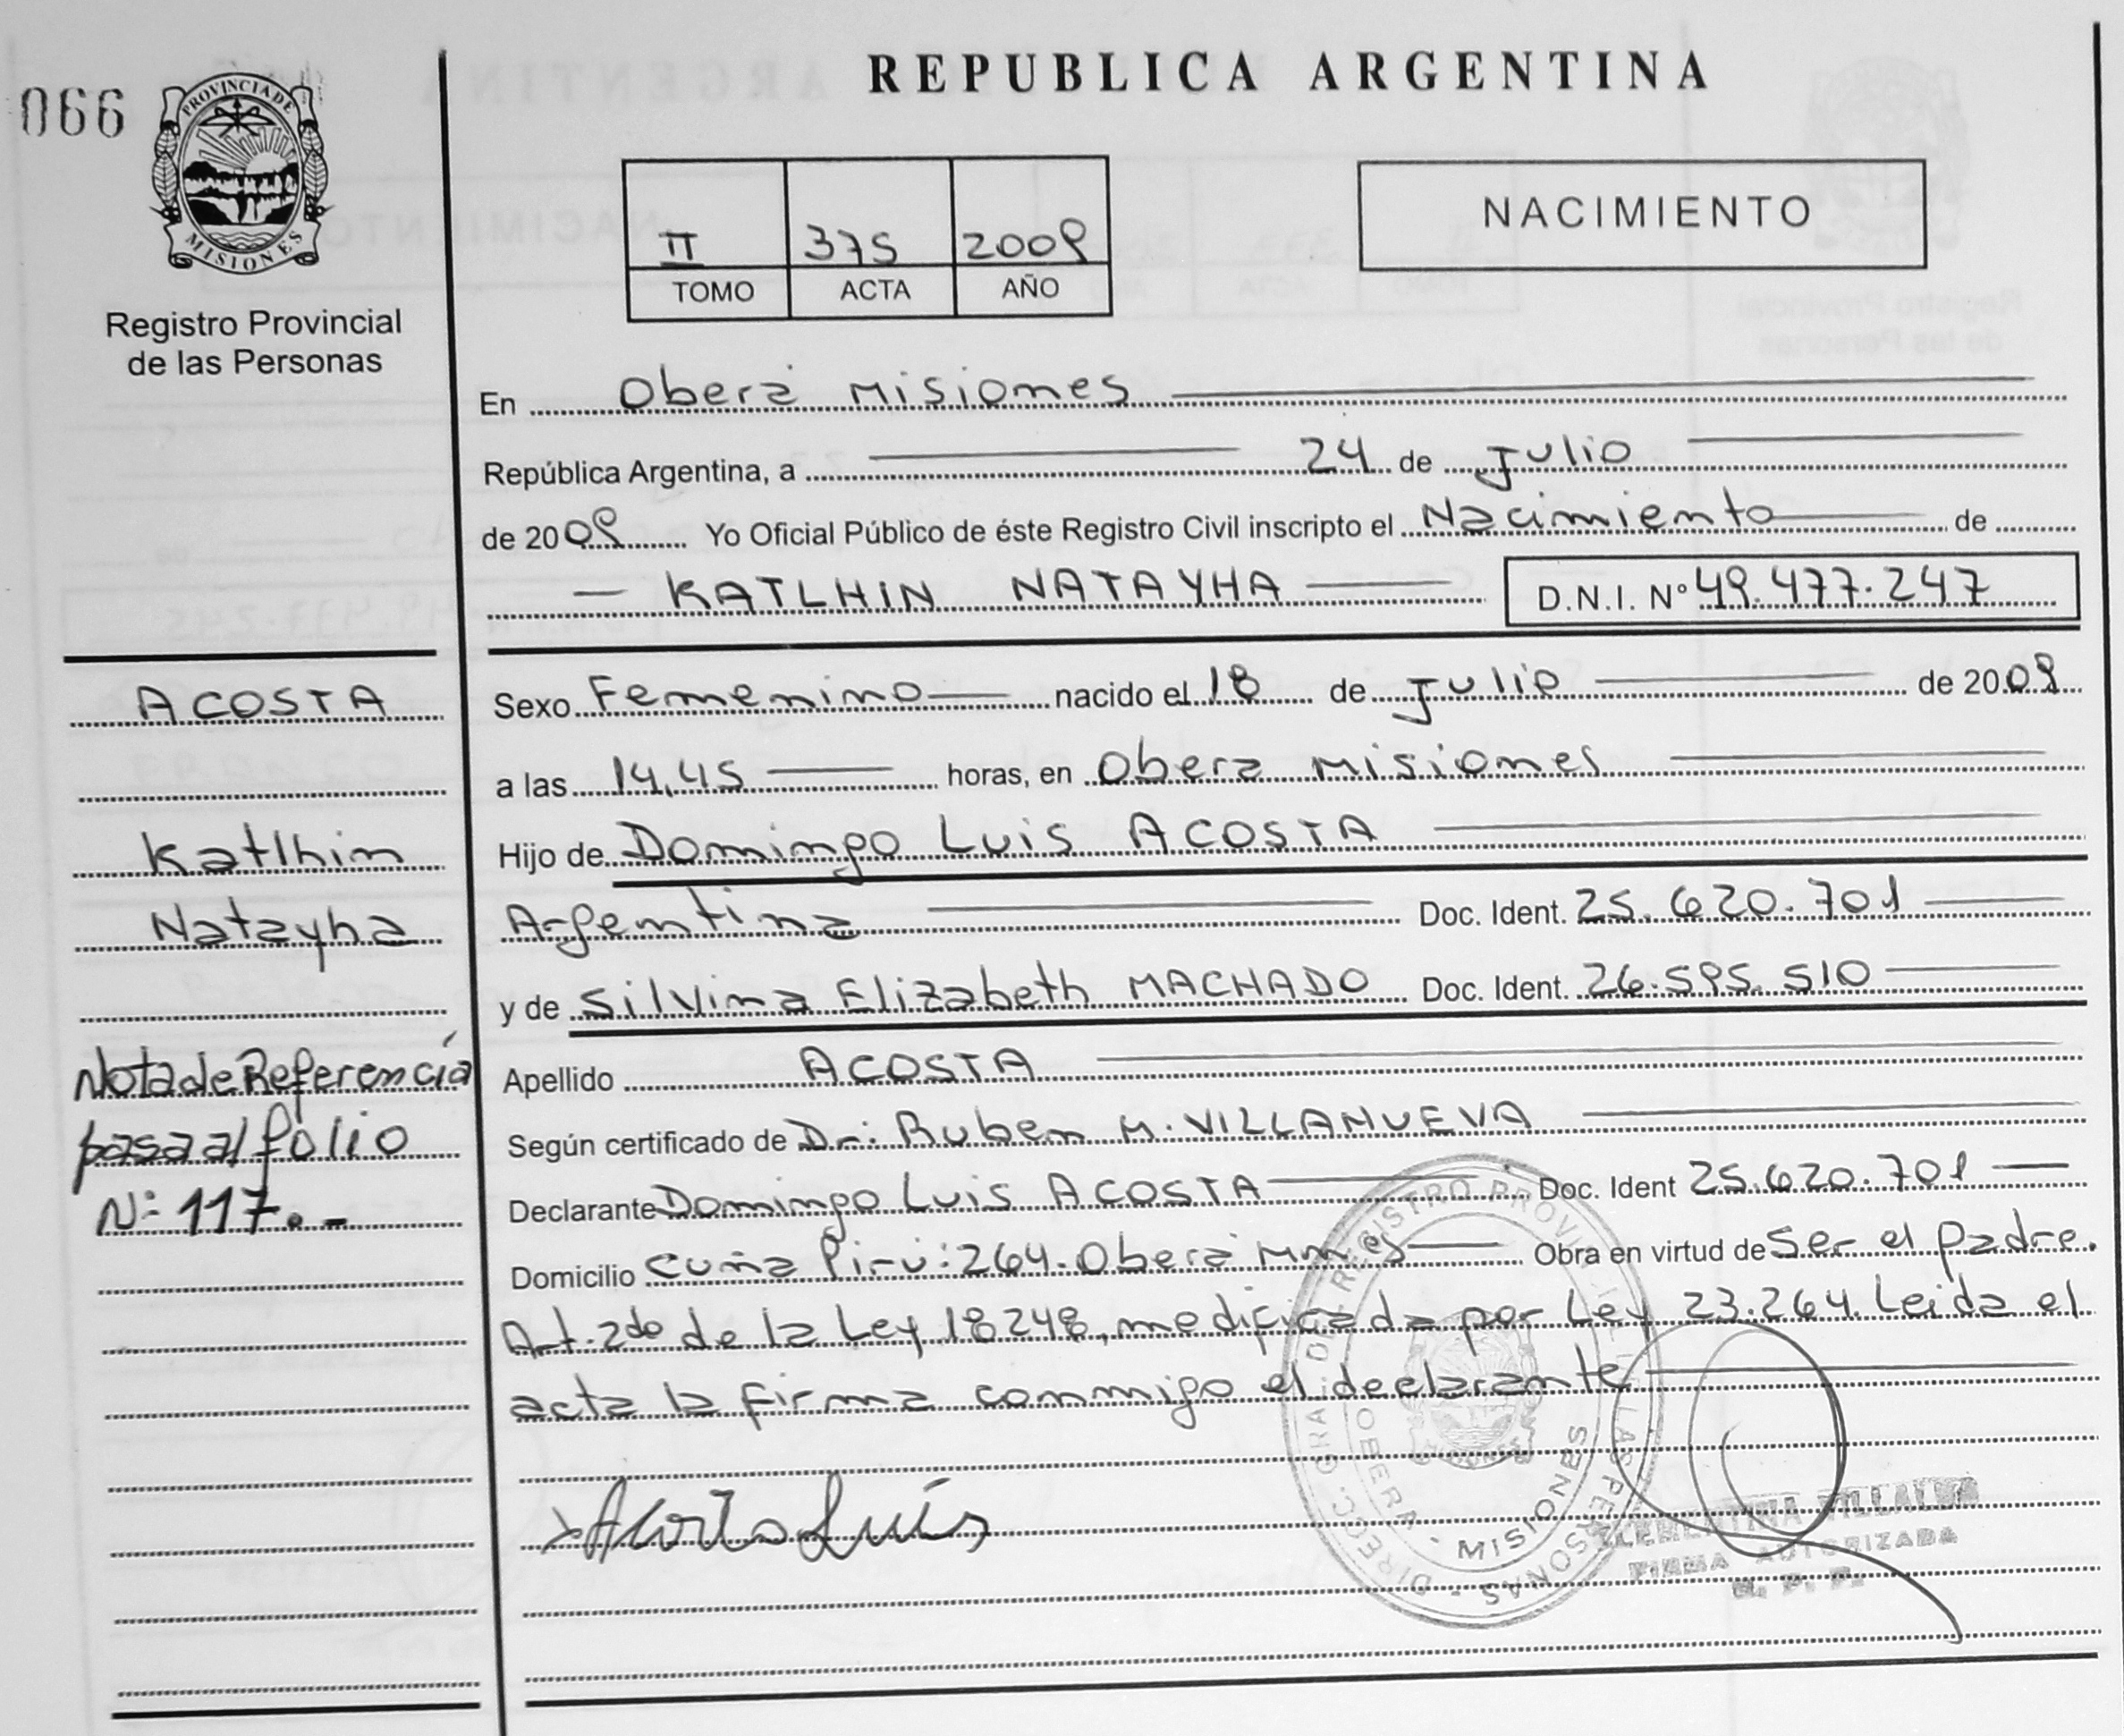 REPUBLICA ARGENTINA
066
PROVINCIA DE
MISIONES
Registro Provincial
de las Personas
II 375 2009
TOMO ACTA AÑO
NACIMIENTO
En Oberá Misiones
República Argentina, a 24 de Julio
de 2009 Yo Oficial Público de éste Registro Civil inscripto el Nacimiento de
KATLHIN NATAYHA D.N.I. Nº 49.477.247
ACOSTA
Katlhin
Natayha
Nota de Referencia
pasa al folio
Nº: 117.-
Sexo Femenino nacido el 18 de Julio de 2009
a las 14,45 horas, en Oberá Misiones
Hijo de Domingo Luis ACOSTA
Argentina Doc. Ident. 25.620.701
y de Silvina Elizabeth MACHADO Doc. Ident. 26.595.510
Apellido ACOSTA
Según certificado de Dr: Ruben M. VILLANUEVA
Declarante Domingo Luis ACOSTA Doc. Ident 25.620.701
Domicilio Cuña Pirú: 264. Oberá Mnes Obra en virtud de Ser el padre.
Art. 2do de la Ley 18248, modificada por Ley 23.264. Leida el
acta la firma conmigo el declarante
Acosta Luis
DIRECC. GRAL. DEL REGISTRO PROVINCIAL DE LAS PERSONAS
OBERA - MISIONES
CLEMENTINA VILLALBA
FIRMA AUTORIZADA
R. P. P.